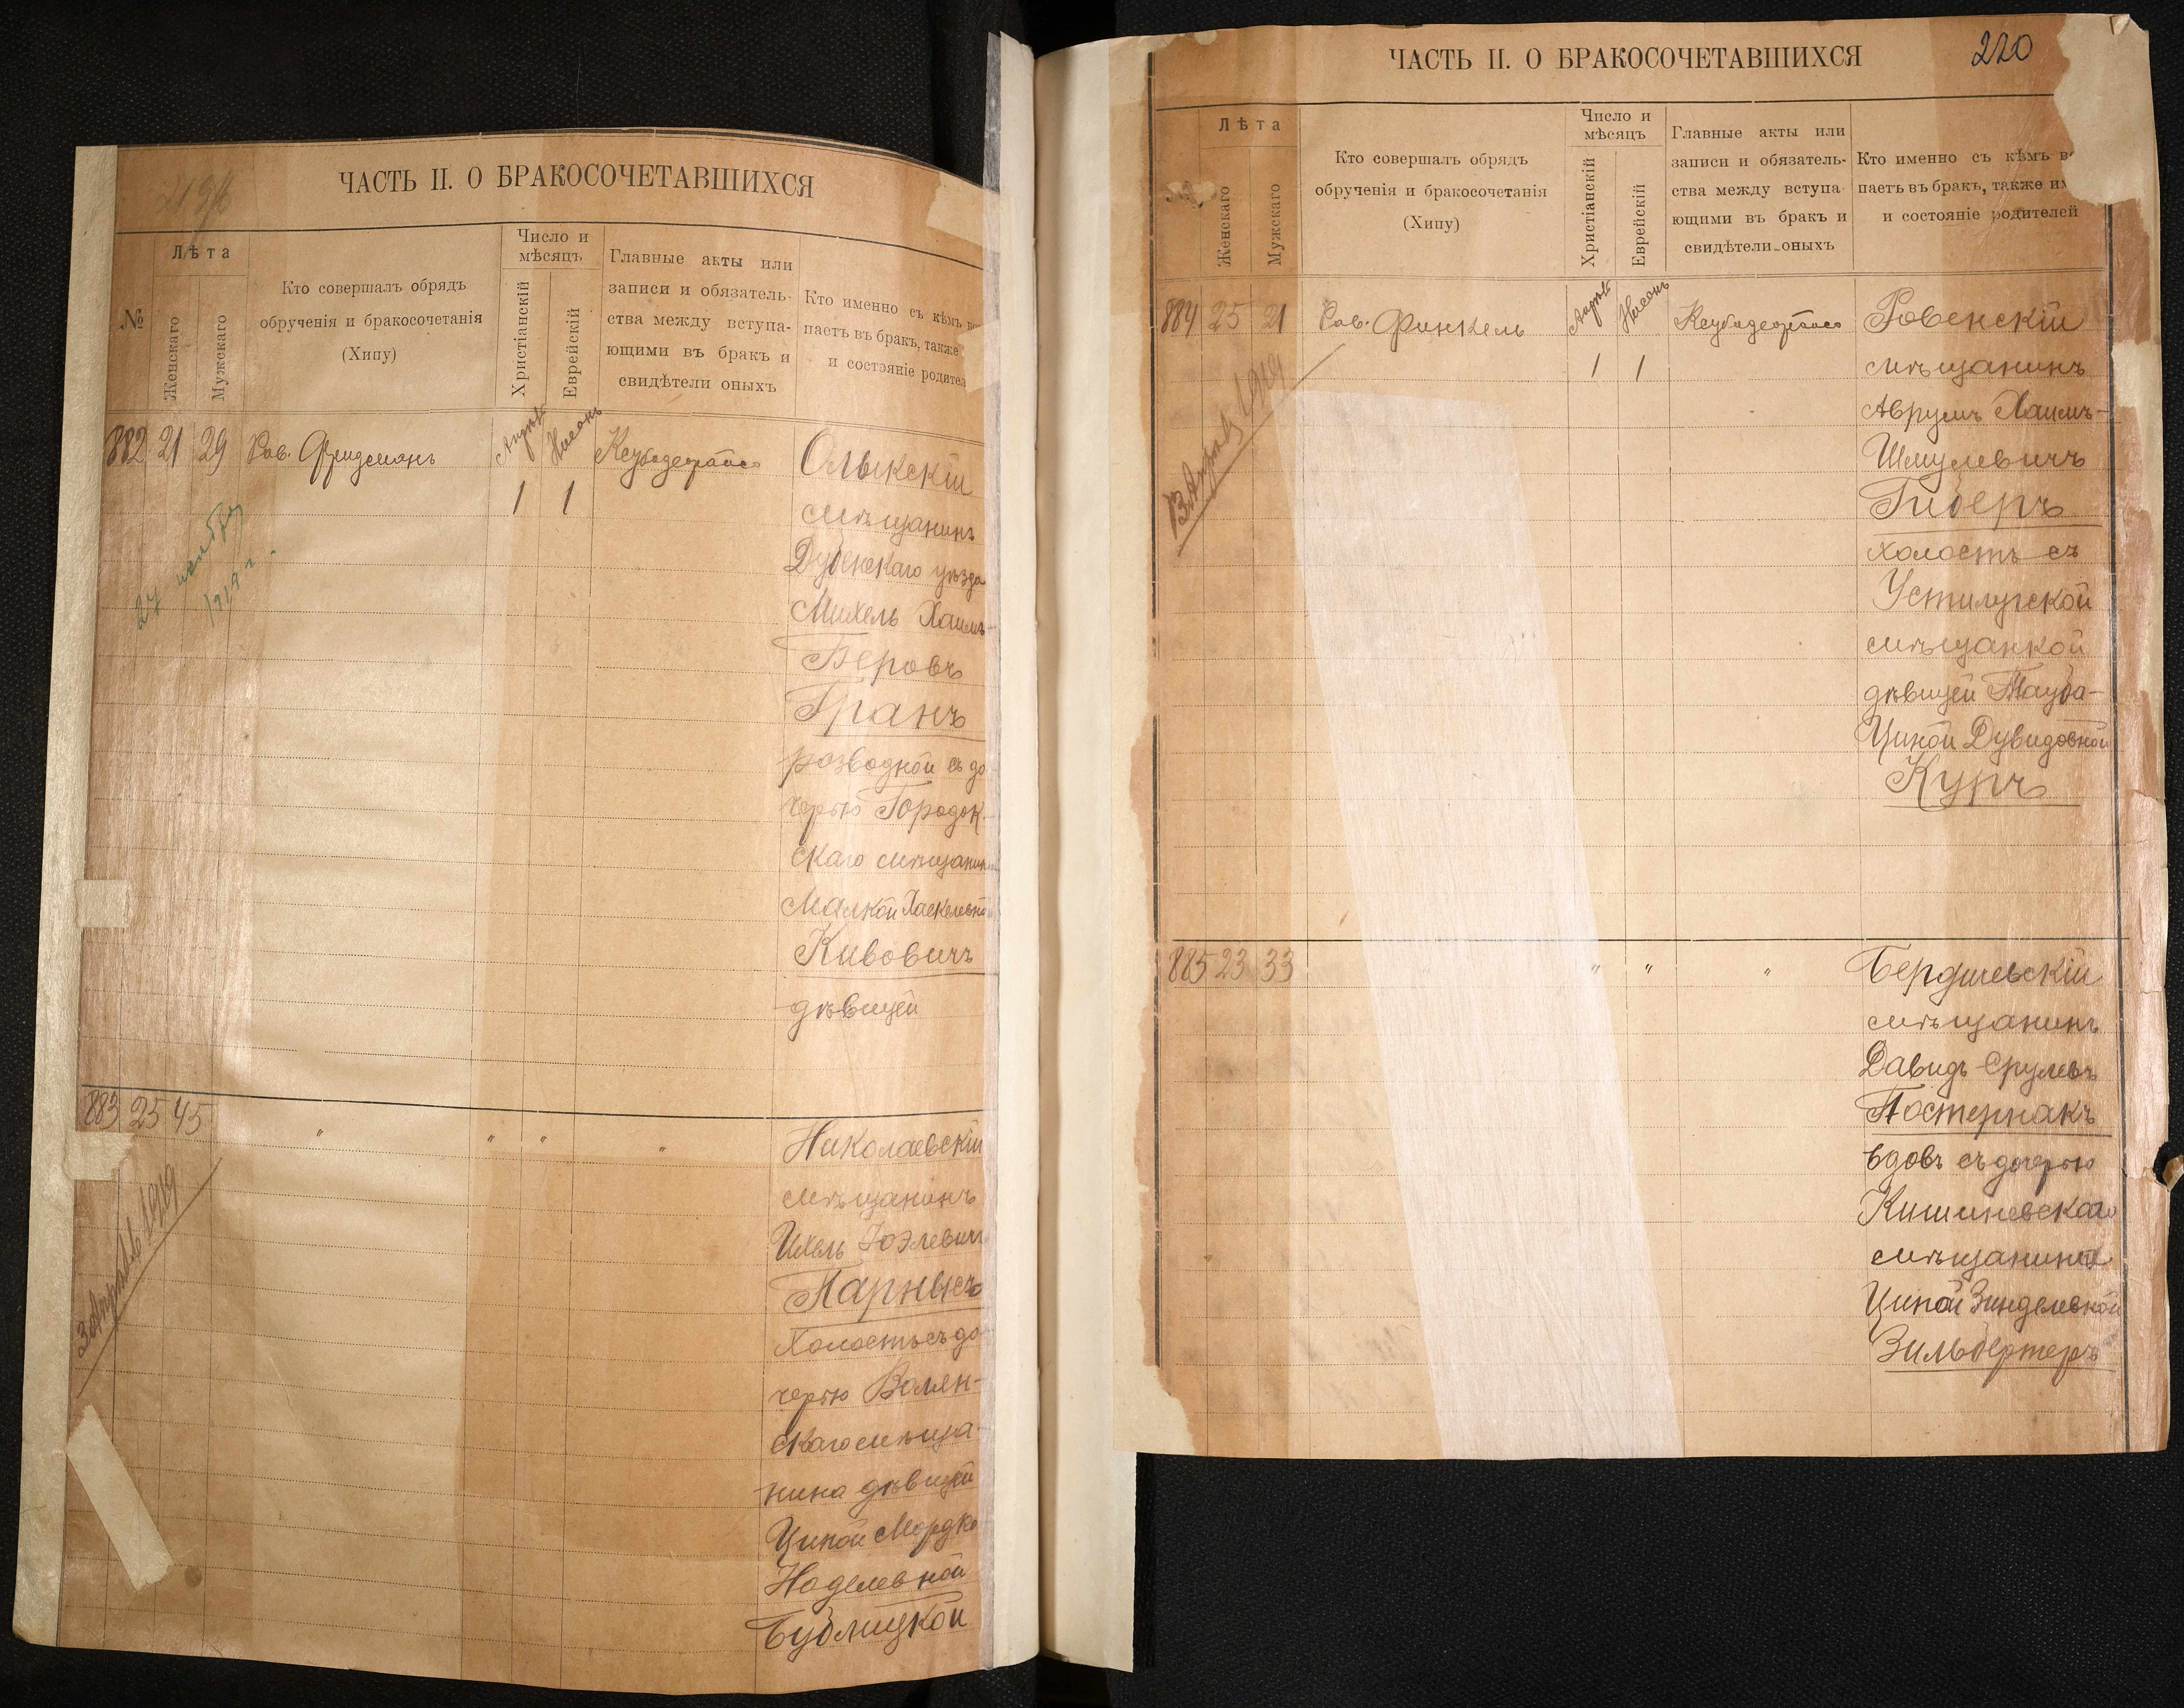 ЧАСТЬ II. О БРАКОСОЧЕТАВШИХСЯ
№
Лѣта
Женскаго
Мужскаго
Кто совершалъ обрядъ
обрученія и бракосочетанія
(Хипу)
Число и
мѣсяцъ
Христіанскій
Еврейскій
Главные акты или
записи и обязатель-
ства между вступа-
ющими въ бракъ и
свидѣтели оныхъ
Кто именно съ кѣмъ
паетъ въ бракъ, также
и состояніе родител
882 21 29 Рав. Фридманъ
1 1
Олыкскій
мѣщанинъ
Дубенскаго уѣзда
Михель Хаимъ-
Беровъ
Гранъ
разводной съ до-
черью Городок-
скаго мѣщанина
Малкой Хаскелевной
Кивовичъ
дѣвицей
27
1919 г.
883 25 45 " " " "
3 Апрѣль 1919
Николаевскій
мѣщанинъ
Ихель Іоэлевич
Парнысъ
Холостъ съ до-
черью Волын-
скаго мѣща-
нина дѣвицей
Ципой Мордко
Ноделевной
Бублицкой
ЧАСТЬ II. О БРАКОСОЧЕТАВШИХСЯ
220
Лѣта
Женскаго
Мужскаго
Кто совершалъ обрядъ
обрученія и бракосочетанія
(Хипу)
Число и
мѣсяцъ
Христіанскій
Еврейскій
Главные акты или
записи и обязатель-
ства между вступа-
ющими въ бракъ и
свидѣтели оныхъ
Кто именно съ кѣмъ в
паетъ въ бракъ, также им
и состояніе родителей
884 25 21 Рав. Финкель
1 1
Ровенскій
мѣщанинъ
Аврумъ Хаимъ-
Шмулевичъ
Гиберъ
холостъ съ
Устилугской
мѣщанкой
дѣвицей Тауба-
Ципой Дувидовной
Купъ
1919
885 23 33 " " "
Бердичевскій
мѣщанинъ
Давидъ Срулевъ
Постернакъ
вдовъ съ дочерью
Кишиневскаго
мѣщанина
Ципой Зинделевной
Зильбертеръ